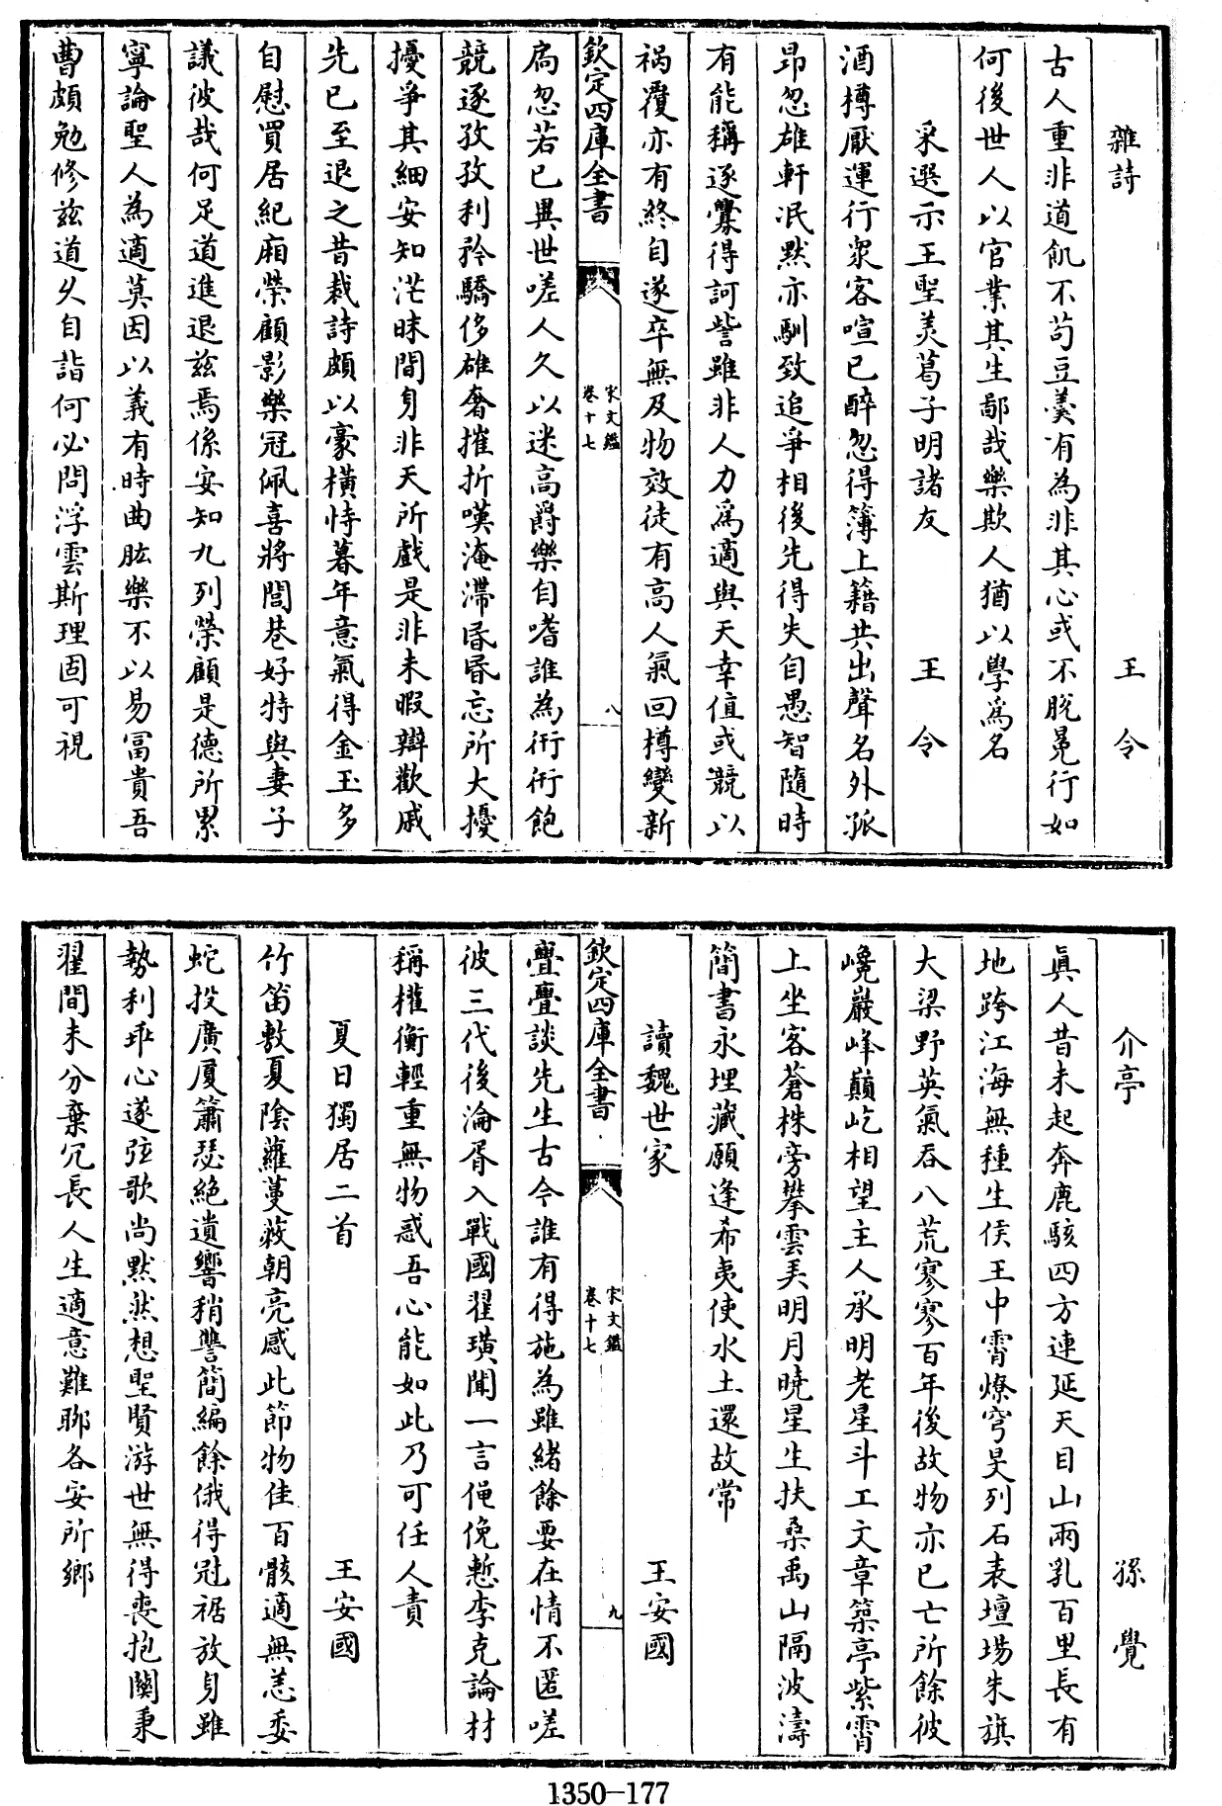 雜詩 王令
古人重非道飢不苟豆羹有為非其心或不脫冕行如
何後世人以官業其生鄙哉樂欺人猶以學爲名
采選示王聖美葛子明諸友 王令
酒樽厭運行衆客喧已醉忽得簿上籍共出聲名外孤
昂忽雄軒泯默亦馴致追爭相後先得失自愚智隨時
有能稱逐釁得訶訾雖非人力爲適與天幸值或競以
禍覆亦有終自遂卒無及物效徒有高人氣回樽變新
欽定四庫全書 宋文鑑 卷十七 八
局忽若已異世嗟人久以迷高爵樂自嗜誰為衎衎飽
競逐孜孜利矜驕侈雄奢摧折嘆淹滯昏昏忘所大擾
擾爭其細安知茫昧間身非天所戲是非未暇辯歡戚
先已至退之昔裁詩頗以豪橫恃暮年意氣得金玉多
自慰買居紀廂榮顧影樂冠佩喜將閭巷好持與妻子
議彼哉何足道進退茲焉係安知九列榮顧是德所累
寧論聖人為適莫因以義有時曲肱樂不以易富貴吾
曹頗勉修茲道乆自詣何必問浮雲斯理固可視
介亭 孫覺
眞人昔未起奔鹿駭四方連延天目山兩乳百里長有
地跨江海無種生侯王中霄燎穹旻列石表壇場朱旗
大梁野英氣吞八荒寥寥百年後故物亦已亡所餘彼
巉巖峰巔屹相望主人承明老星斗工文章築亭紫霄
上坐客蒼株旁攀雲弄明月曉星生扶桑禹山隔波濤
簡書永埋藏願逢希夷使水土還故常
讀魏世家 王安國
欽定四庫全書 宋文鑑 卷十七 九
亹亹談先生古今誰有得施為雖緒餘要在情不匿嗟
彼三代後淪胥入戰國翟璜聞一言僶俛慙李克論材
稱權衡輕重無物惑吾心能如此乃可任人責
夏日獨居二首 王安國
竹笛敷夏陰蘿蔓蔽朝亮感此節物佳百骸適無恙委
蛇投廣厦簫瑟絕遺響稍讐簡編餘俄得冠裾放身雖
勢利乖心遂弦歌尚默然想聖賢游世無得喪抱關秉
翟間未分棄冗長人生適意難聊各安所鄉
1350-177